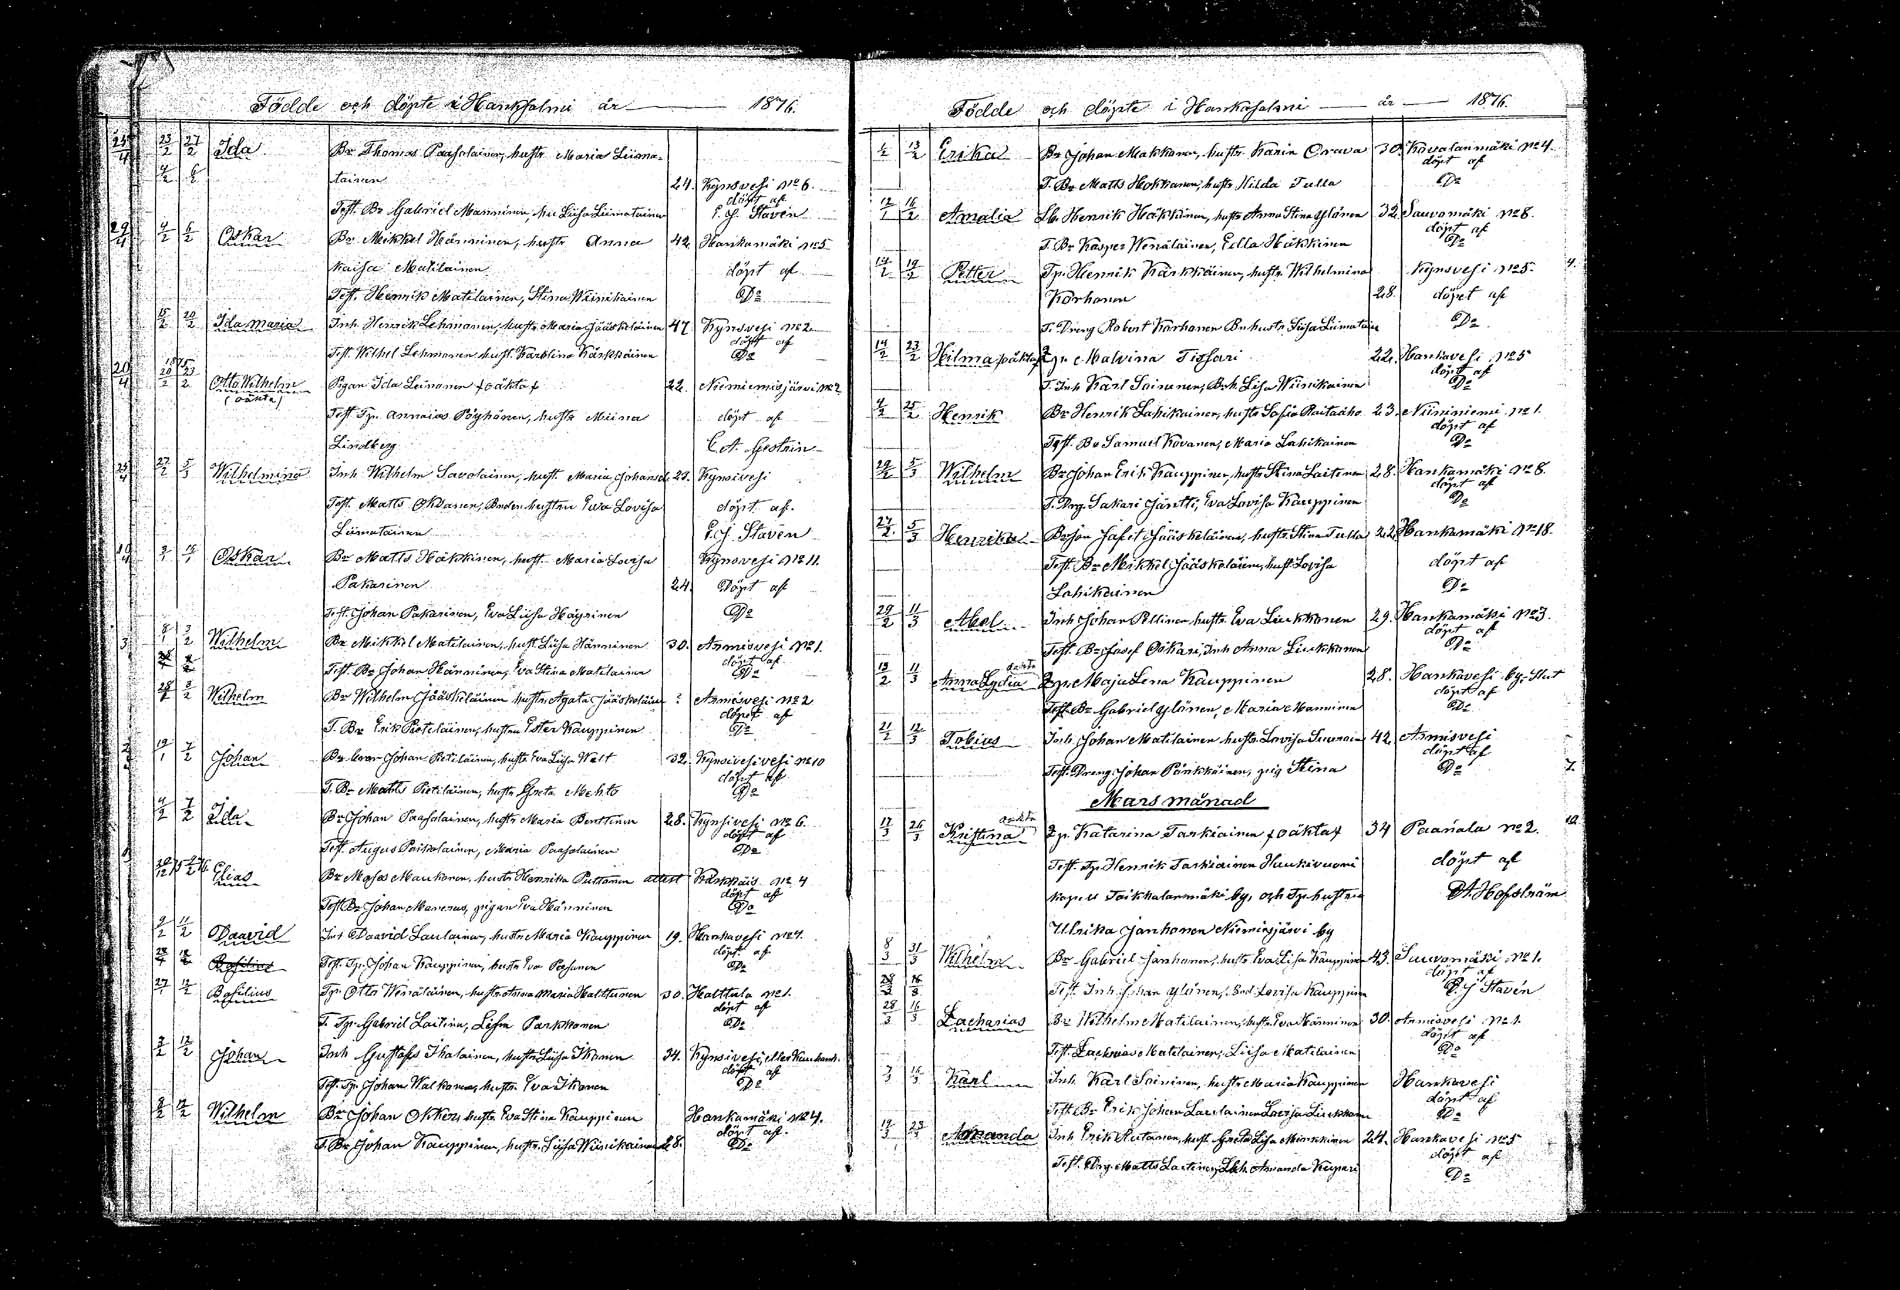 Födde och döpte i Hankasalmi år 1876.
25/4 23/2 27/2 Ida Br Thomas Paasolainen, hustr Maria Liima-
4/2 6/2 tainen 24. Kynsvesi No 6. döpt af
Test. Br Gabriel Manninen, Liisa Liimatainen E. J. Stavén
29/4 4/2 6/2 Oskar Br Mikkel Hänninen, hustr Anna 42. Hankamäki No 5
Kaisa Matilainen döpt af
Test. Henrik Matilainen, Stina Wiinikainen Do
15/2 20/2 Ida Maria Inh. Henrik Lehmonen, hustr. Maria Jääskeläinen 47 Kynsvesi No 2
döpt af
Test. Wilhel Lehmonen hust. Karolina Kärkkäinen Do
20/4 20/2 23/2 Otto Wilhelm Pigan Ida Leinonen foäktaf 22. Niemiemisjärvi No 2
(oäkta)
Test Tp. Annaias Pöyhönen, hustr Miina döpt af
Lindberg
25/4 27/2 5/3 Wilhelmina Inh. Wilhelm Savolainen, hust. Maria Johansd. 23. Kynsivesi
Test. Matts Oksanen, Bondens hustru Eva Lovisa döpt af.
Liimatainen E. J. Stavén
Oskar Br Matts Häkkinen, hust. Maria Lovisa Kynsvesi No 11.
Pakarinen 24. Döpt af
Test. Johan Pakarinen, Eva Liisa Häyrinen Do
8/1 3/2 Wilhelm Br Mikkel Matilainen, hust Liisa Hänninen 30. Armisvesi No 1.
döpt af
Test. Br Johan Hänninen, Eva Stina Matilainen Do
28/1 3/2 Wilhelm Br Wilhelm Jääskeläinen hustr Agata Jääskeläinen ? Armisvesi No 2
döpt af
T. Br Erik Pietiläinen, hustru Ester Kauppinen Do
19/1 7/2 Johan Johan Pietiläinen, hustr Eva Liisa Watt 32. Kynsivesivesi No 10
döpt af
T. Br Matts Pietiläinen, hustr Greta Mehto Do
4/2 7/2 Ida Br Johan Paasolainen, hustr Maria Penttinen 28. Kynsivesi No 6.
döpt af
Test. August Paasolainen, Maria Paasolainen Do
Elias Br Moses Maukonen, hustr Henrika Puttonen attest Kärkkäis No 4
döpt af
Test Br Johan Manerus, pigan Eva Hänninen Do
9/2 11/2 Daavid Inh Daavid Laulainen, hustr Maria Kauppinen 19. Hankavesi No 4.
döpt af
Basilius Test. Tp. Johan Kauppinen, hustr Eva Do
27/1 12/2 Basilius Tp. Otto Wenäläinen, hustr Anna Maria Halttunen 30. Halttula No 1.
döpt af
T. Tp. Gabriel Laitinen, Lisa Parkkonen Do
3/2 12/2 Johan Inh Gustafs Ikalainen, hustr Liisa Ikonen 34. Kynsivesi
döpt af
Test. Tp. Johan Walkonen, hustr Eva Ikonen Do
12/2 Wilhelm Br Johan Okkonen hustr Eva Stina Kauppinen Hankamäki No 4.
döpt af
T. Br Johan Kauppinen, hustr. Liisa Wiinikainen 28. Do
Födde och döpte i Hankasalmi år 1876.
6/2 13/2 Erika Br Johan Makkonen, hustr Karin Orava 30. Kovalanmäki No 4.
döpt af
T. Br Matts Hokkanen, hustr Hilda Tulla Do
12/1 16/2 Amalia Henrik Häkkinen, hustr Anna Stina Ylönen 32. Sauvomäki No 8.
döpt af
T. Br Kasper Wenäläinen, Eella Häkkinen Do
14/2 19/2 Petter Tp. Henrik Kärkkäinen, hustr. Wilhelmina Kynsvesi No 5. 4.
Korhonen 28. döpt af
T. Dreng Robert Korhonen Bnhustr Liisa Liimatain Do
14/2 23/2 Hilma foäktaf Malvina Tissari 22. Hankavesi No 5
döpt af
T. Inh Karl Soininen, Brh Lisa Wiinikainen Do
4/2 25/2 Henrik Br Henrik Lahikainen, hustr Sofia Raitaaho 23. Niininiemi No 1.
döpt af
Test. Br Samuel Kovanen, Maria Lahikainen Do
5/3 Wilhelm Br Johan Erik Kauppinen, hustr Stina Laitinen 28. Hankamäki No 8
döpt af
T. Drg. Sakari Jäntti, Eva Lovisa Kauppinen Do
27/2 5/3 Henrika Jafet Jääskeläinen, hustr Stina Tulla 22 Hankamäki No 18.
Test. Br Mikkel Jääskeläinen, hust Lovisa döpt af
Lahikainen Do
29/2 11/3 Abel Inh Johan Pellinen hustr Eva Liukkonen 29. Hankamäki No 3.
döpt af
Test. Br Josef Oikari, Inh Anna Liukkonen Do
oäkta
13/2 11/3 Anna Lydia Maja Lena Kauppinen 28. Hankavesi by
döpt af
Test. Br Gabriel Ylönen, Maria Manninen Do
21/2 12/3 Tobias Inh. Johan Matilainen hustr Lovisa 42. Armisvesi
döpt af
Test. Dreng Johan Pänkkäinen, pig Stina Do 7.
Mars månad
oäkta
12/3 26/3 Kristina Katarina Tarkiainen foäktaf 34 Paanala No 2. 10
Test. Tp. Henrik Tarkiainen Haukivuori döpt af
kapell Toikkalanmäki by, och Tp. hustru A. Hofström
Ulrika Janhonen Niemisjärvi by
8/3 31/3 Wilhelm Br Gabriel Janhonen, hustr Eva Lisa Kauppinen 43. Sauvomäki No 1.
döpt af
Test. Inh. Johan Ylönen, Lovisa Kauppinen E. J Stavén
28/3 16/3 Zacharias Br Wilhelm Matilainen, hustr Eva Hänninen 30. Armisvesi No 1.
döpt af
Test. Zacharias Matilainen, Liisa Matilainen Do
7/3 16/3 Karl Inh. Karl Soininen, hustr Maria Kauppinen Hankavesi
döpt af
Test. Br Erik Johan Laulainen Lovisa Liukkonen Do
Amanda Inh Erik Rutanen, hust. Greta Lisa Minkkinen 24. Hankavesi No 5
döpt af
Test. Drg. Matts Laitinen, Amanda Do